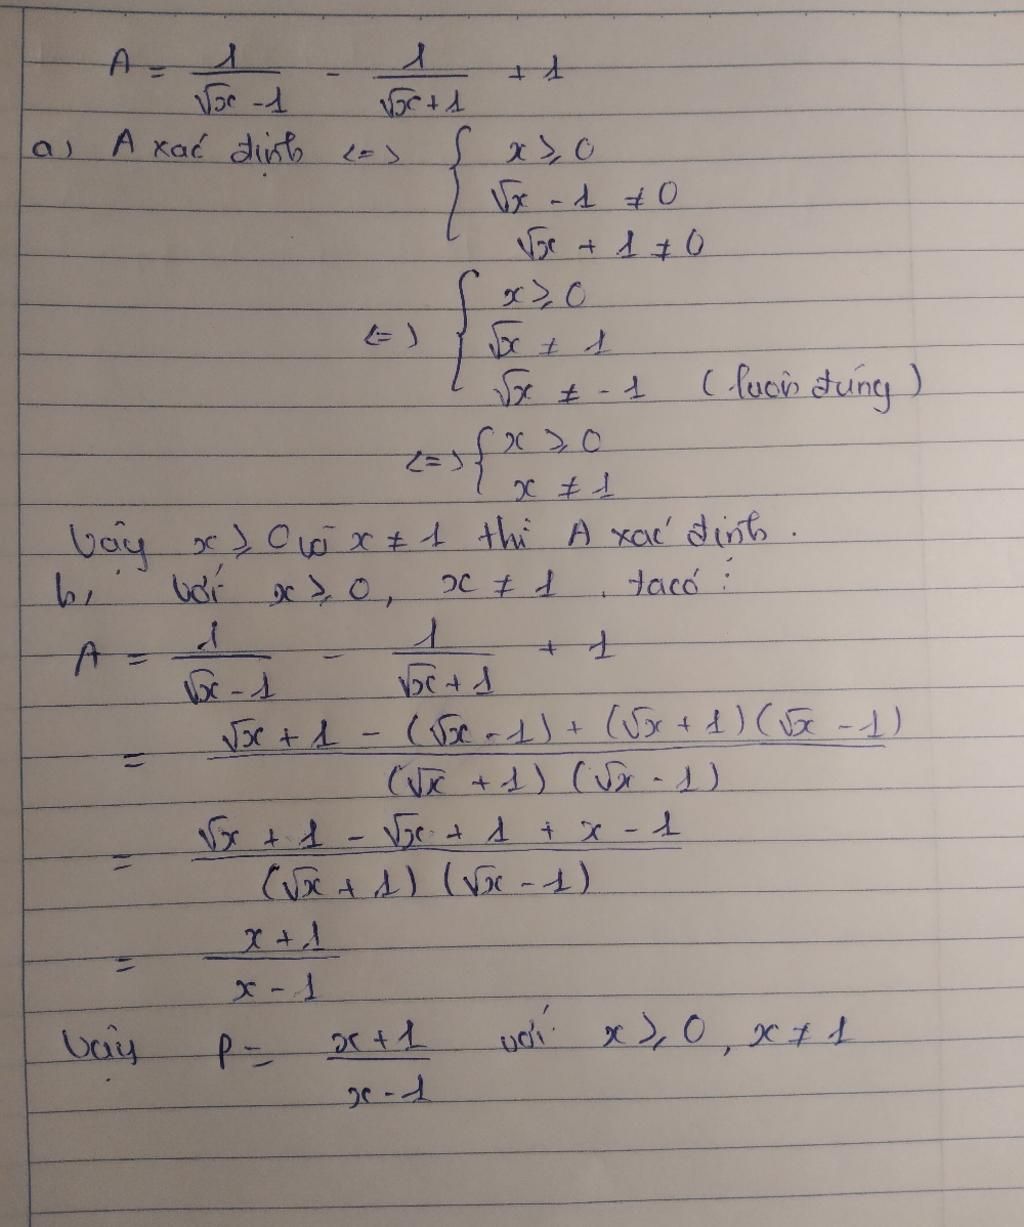 A = 1/(√x - 1) - 1/(√x + 1) + 1
a) A xác định <=> { x ≥ 0
√x - 1 ≠ 0
√x + 1 ≠ 0
<=> { x ≥ 0
√x ≠ 1
√x ≠ -1 (luôn đúng)
<=> { x ≥ 0
x ≠ 1
Vậy x ≥ 0 và x ≠ 1 thì A xác định.
b, Với x ≥ 0, x ≠ 1, ta có:
A = 1/(√x - 1) - 1/(√x + 1) + 1
= (√x + 1 - (√x - 1) + (√x + 1)(√x - 1))/((√x + 1)(√x - 1))
= (√x + 1 - √x + 1 + x - 1)/((√x + 1)(√x - 1))
= (x + 1)/(x - 1)
Vậy P = (x + 1)/(x - 1) với x ≥ 0, x ≠ 1